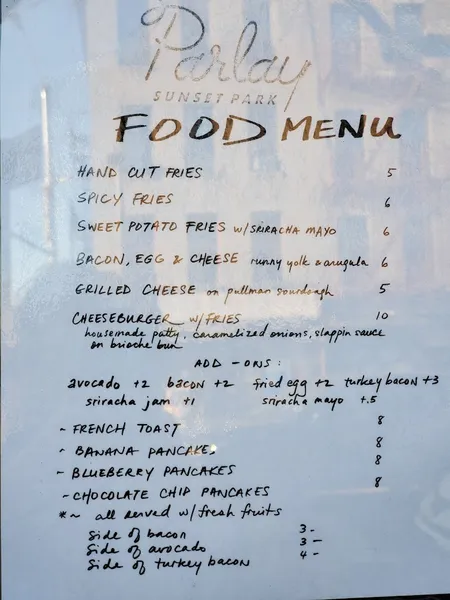 Parlay
SUNSET PARK
FOOD MENU
HAND CUT FRIES 5
SPICY FRIES 6
SWEET POTATO FRIES w/SRIRACHA MAYO 6
BACON, EGG & CHEESE runny yolk & arugula 6
GRILLED CHEESE on pullman sourdough 5
CHEESEBURGER w/FRIES 10
housemade patty, caramelized onions, slappin sauce
on brioche bun
ADD-ONS:
avocado +2 bacon +2 fried egg +2 turkey bacon +3
sriracha jam +1 sriracha mayo +.5
- FRENCH TOAST 8
- BANANA PANCAKES 8
- BLUEBERRY PANCAKES 8
- CHOCOLATE CHIP PANCAKES 8
*~ all served w/fresh fruits
Side of bacon 3-
Side of avocado 3-
Side of turkey bacon 4-